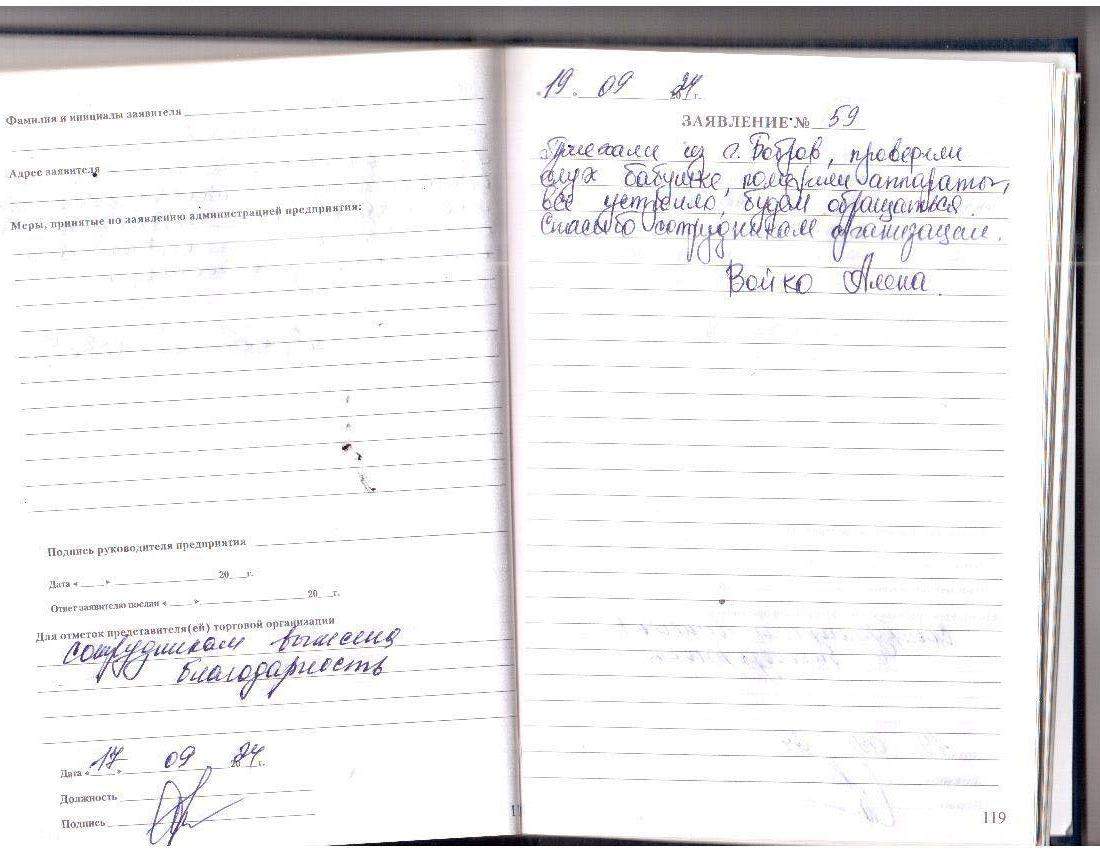 Фамилия и инициалы заявителя
Адрес заявителя
Меры, принятые по заявлению администрацией предприятия:
Подпись руководителя предприятия
Дата « » 20 г.
Ответ заявителю послан « » 20 г.
Для отметок представителя(ей) торговой организации
сотрудникам вынесена
благодарность
Дата « 17 » 09 2024 г.
Должность
Подпись
« 19 » 09 2024 г.
ЗАЯВЛЕНИЕ № 59
Приехали из г. Бобров, проверили
слух бабушке, померили аппараты,
всё устроило, будем обращаться.
Спасибо сотрудникам организации.
Войко Алена.
119